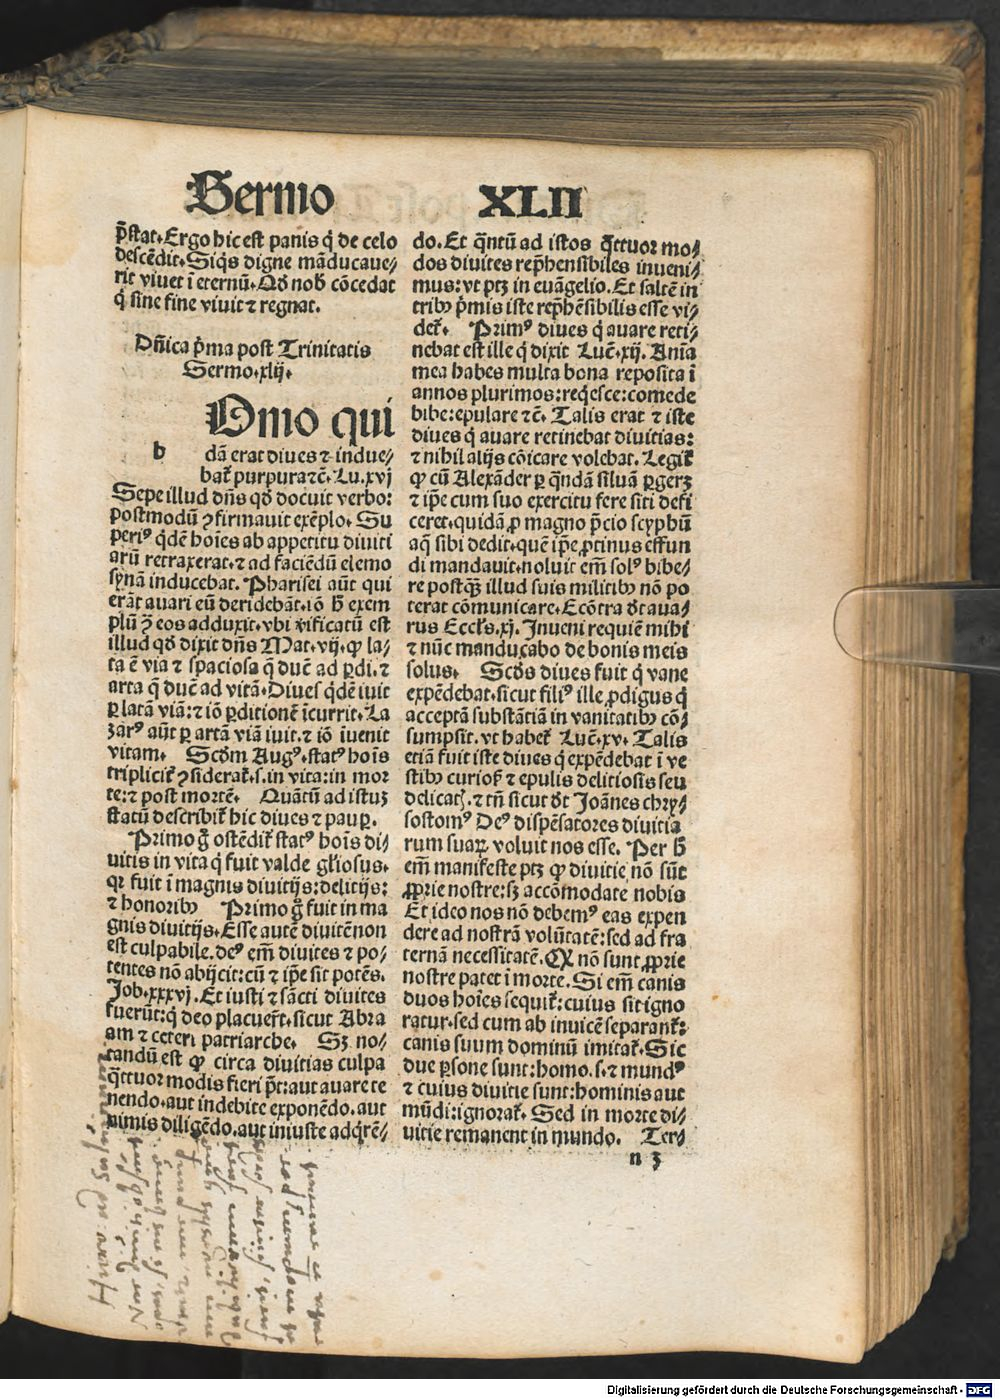 Sermo XLII
p̄stat. Ergo hic est panis q̇ de celo
descēdit. Siq̇s digne māducaue⸗
rit viuet ī eternū. Qḋ nob̄ cōcedat
q̇ sine fine viuit ⁊ regnat.
Dn̄ica ṗma post Trinitatis
Sermo. xlij.
h Omo qui
dā erat diues ⁊ indue⸗
bat᷑ purpura ⁊c̄. Lu. xvj
Sepe illud dn̄s qḋ docuit verbo:
postmodū ꝯfirmauit exēplo. Su
perꝰ q̇dē hoīes ab appetitu diuiti
arū retraxerat. ⁊ ad faciēdū elemo
synā inducebat. Pharisei aūt qui
erāt auari eū deridebāt. iō h̄ exem
plū ꝯ̄ eos adduxit. vbi v̇ificatū est
illud qḋ dixit dn̄s Mat. vij. ꝙ la⸗
ta ē via ⁊ spaciosa q̄ duc̄ ad ꝑdi. ⁊
arta q̄ duc̄ ad vitā. Diues q̇dē iuit
ꝑ latā viā: ⁊ iō ꝑditionē īcurrit. La
zarꝰ aūt ꝑ artā viā iuit. ⁊ iō iuenit
vitam. Scḋm Augꝰ. statꝰ hoīs
triplicit᷑ ꝯsiderat᷑. s. in vita: in mor
te: ⁊ post mortē. Quātū ad istuꝫ
statū describit᷑ hic diues ⁊ paup̲.
Primo g̊ ostēdit᷑ statꝰ hoīs di⸗
uitis in vita q̇ fuit valde gl̄iosus.
qꝛ fuit ī magnis diuitijs: delitijs:
⁊ honoribꝰ Primo g̊ fuit in ma
gnis diuitijs. Esse autē diuitē non
est culpabile. deꝰ em̄ diuites ⁊ po⸗
tentes nō abijcit: cū ⁊ ip̄e sit potēs.
Job. xxxvj. Et iusti ⁊ sācti diuites
fuerūt: q̇ deo placuer̄t. sicut Abra
am ⁊ ceteri patriarche. Sꝫ no⸗
tandū est ꝙ circa diuitias culpa
q̇ttuor modis fieri p̄t: aut auare te
nendo. aut indebite exponēdo. aut
nimis diligēdo. aut iniuste adq̇rē⸗
do. Et q̄ntū ad istos q̇ttuor mo⸗
dos diuites rep̄hensibiles inueni⸗
mus: vt ptꝫ in euāgelio. Et saltē in
tribꝰ ṗmis iste rep̄hēsibilis esse vi⸗
det᷑. Primꝰ diues q̇ auare reti⸗
nebat est ille q̇ dixit Luc̄. xij. Anīa
mea habes multa bona reposita ī
annos plurimos: req̇esce: comede
bibe: epulare ⁊c̄. Talis erat ⁊ iste
diues q̇ auare retinebat diuitias:
⁊ nihil alijs cōicare volebat. Legit᷑
ꝙ cū Alexāder ꝑ q̄ndā siluā ꝑgeret
⁊ ip̄e cum suo exercitu fere siti defi
ceret. quidā ꝓ magno p̄cio scyphū
aq̄ sibi dedit. quē ip̄e ꝓtinus effun
di mandauit. noluit em̄ solꝰ bibe⸗
re postq̄ꝫ illud suis militibꝰ nō po
terat cōmunicare. Ecōtra dt̄ aua⸗
rus Eccl̄s. xj. Inueni requiē mihi
⁊ nūc manducabo de bonis meis
solus. Scḋs diues fuit q̇ vane
expēdebat. sicut filiꝰ ille ꝓdigus q̇
acceptā substātiā in vanitatibꝰ cō⸗
sumpsit. vt habet᷑ Luc̄. xv. Talis
etiā fuit iste diues q̇ expēdebat ī ve
stibꝰ curiosꝭ ⁊ epulis delitiosis seu
delicatꝭ. ⁊ tn̄ sicut dt̄ Joānes chry⸗
sostomꝰ Deꝰ dispēsatores diuitia
rum suaꝝ voluit nos esse. Per h̄
em̄ manifeste ptꝫ ꝙ diuitie nō sūt
ꝓprie nostre: sꝫ accōmodate nobis
Et ideo nos nō debemꝰ eas expen
dere ad nostrā volūtatē: sed ad fra
ternā necessitatē. Qꝙ nō sunt ꝓprie
nostre patet ī morte. Si em̄ canis
duos hoīes sequit᷑: cuius sit igno
ratur. sed cum ab inuicē separant᷑:
canis suum dominū imitat᷑. Sic
due ꝑsone sunt: homo. s. ⁊ mundꝰ
⁊ cuius diuitie sunt: hominis aut
mūdi: ignorat᷑. Sed in morte di⸗
uitie remanent in mundo. Ter⸗
n 3
Digitalisierung gefördert durch die Deutsche Forschungsgemeinschaft - DFG